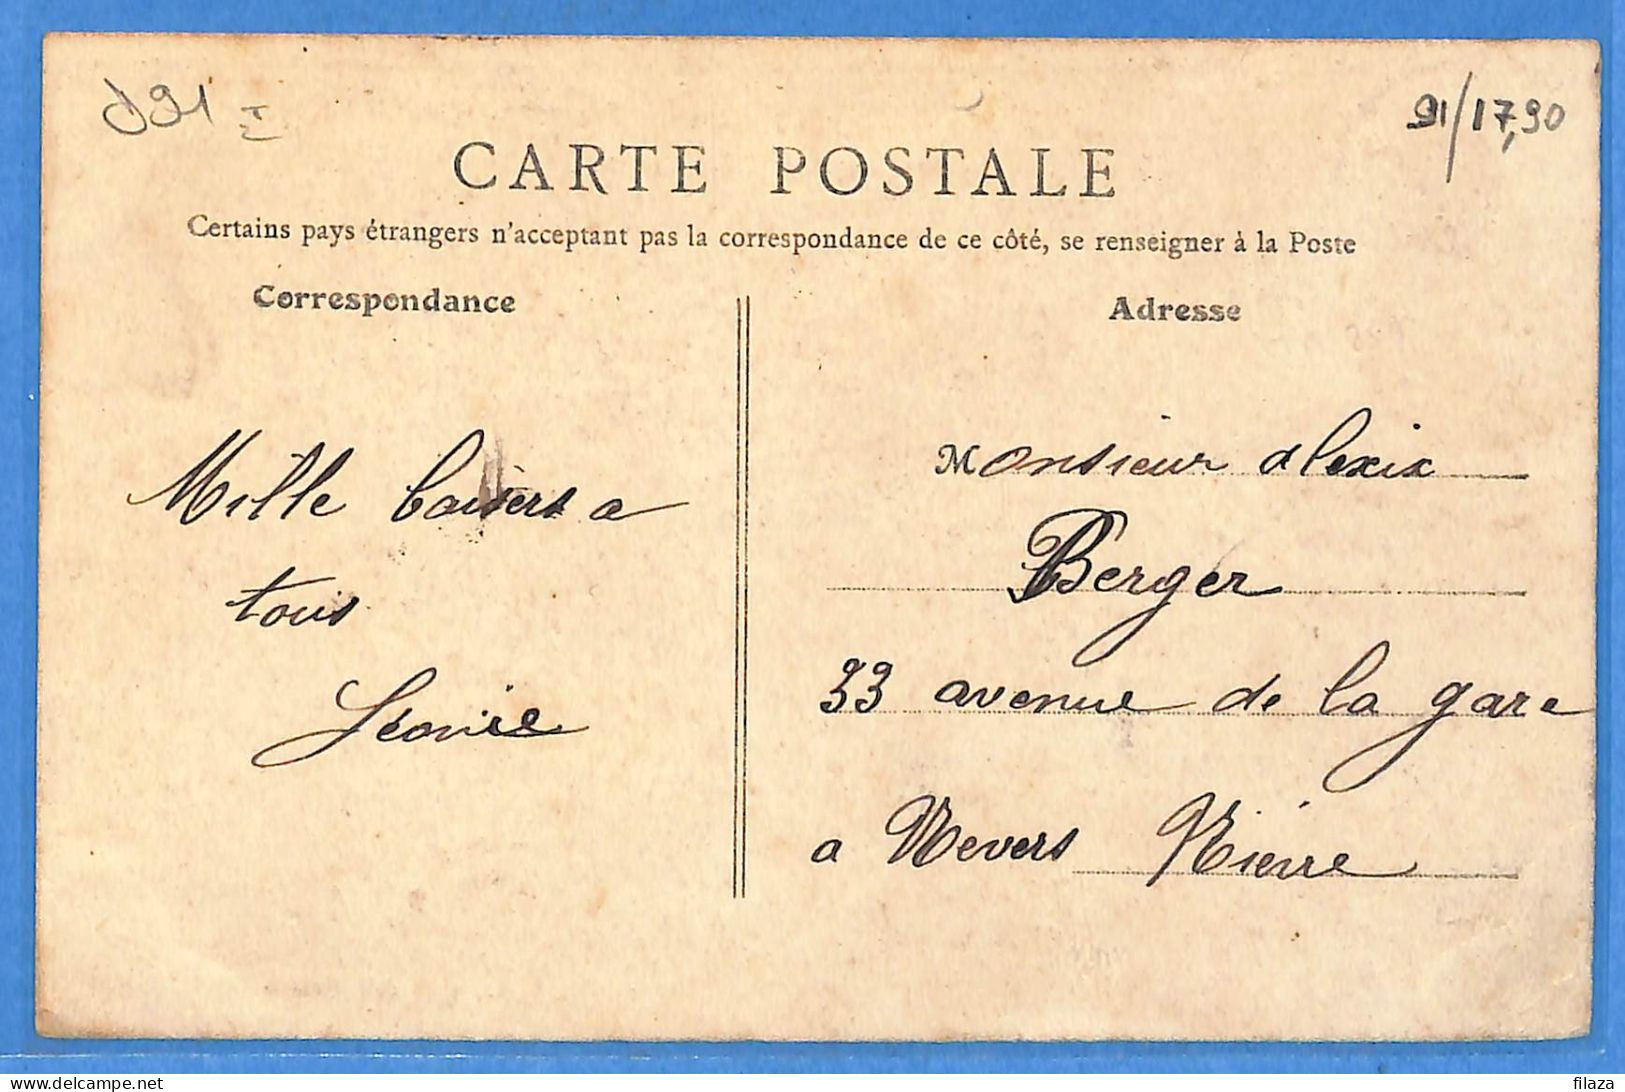 d91 I
91/17,90
CARTE POSTALE
Certains pays étrangers n'acceptant pas la correspondance de ce côté, se renseigner à la Poste
Correspondance
Mille baisers a
tous
Léonie
Adresse
Monsieur alexix
Berger
33 avenue de la gare
a Nevers Nièvre
delcampe.net
filaza